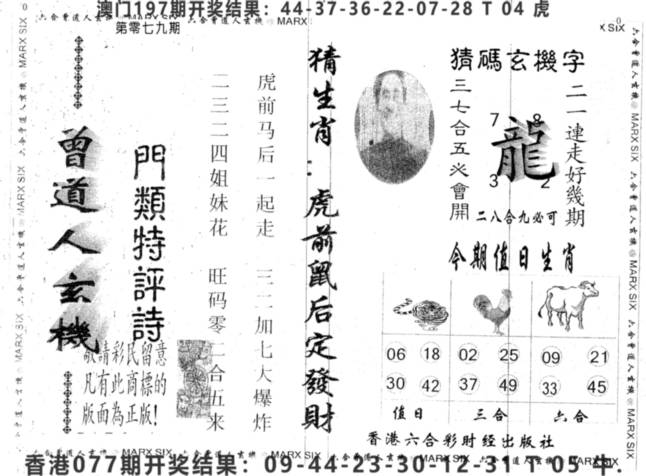 澳门197期开奖结果：44-37-36-22-07-28 T 04 虎
第零七九期
曾道人玄機
門類特評詩
敬請彩民留意
凡有此商標的
版面為正版!
二三二二四姐妹花 旺码零二合五来
虎前马后一起走 三二加七大爆炸
猜生肖：虎前鼠后定發財
猜碼玄機字
三七合五必會開
7 8
龍
3 2
二一連走好幾期
二八合九必可
今期值日生肖
06 18 02 25 09 21
30 42 37 49 33 45
值日 三合 六合
香港六合彩财经出版社
香港077期开奖结果：09-44-23-30-12-31 T 05 牛